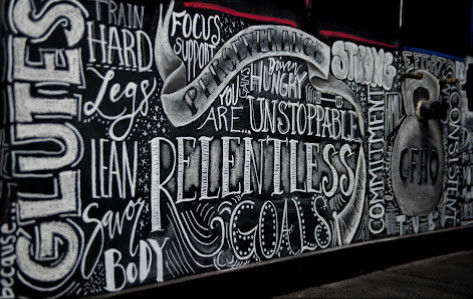 because
GLUTES
TRAIN
HARD
Legs
LEAN
Savor
BODY
FOCUS
SUPPORT
PERSEVERANCE
driven
HUNGRY
YOU
ARE...UNSTOPPABLE
RELENTLESS
GOALS
STRONG
COMMITMENT
CFKO
CONSISTENT